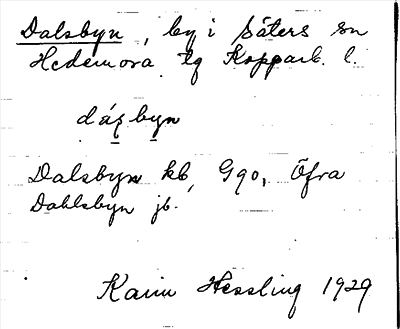 Dalsbyn, by i Säters sn
Hedemora tg Kopparb. l.
dáʂbyn
Dalsbyn kb, Ggo, Öfra
Dahlsbyn jb.
Karin Hessling 1929